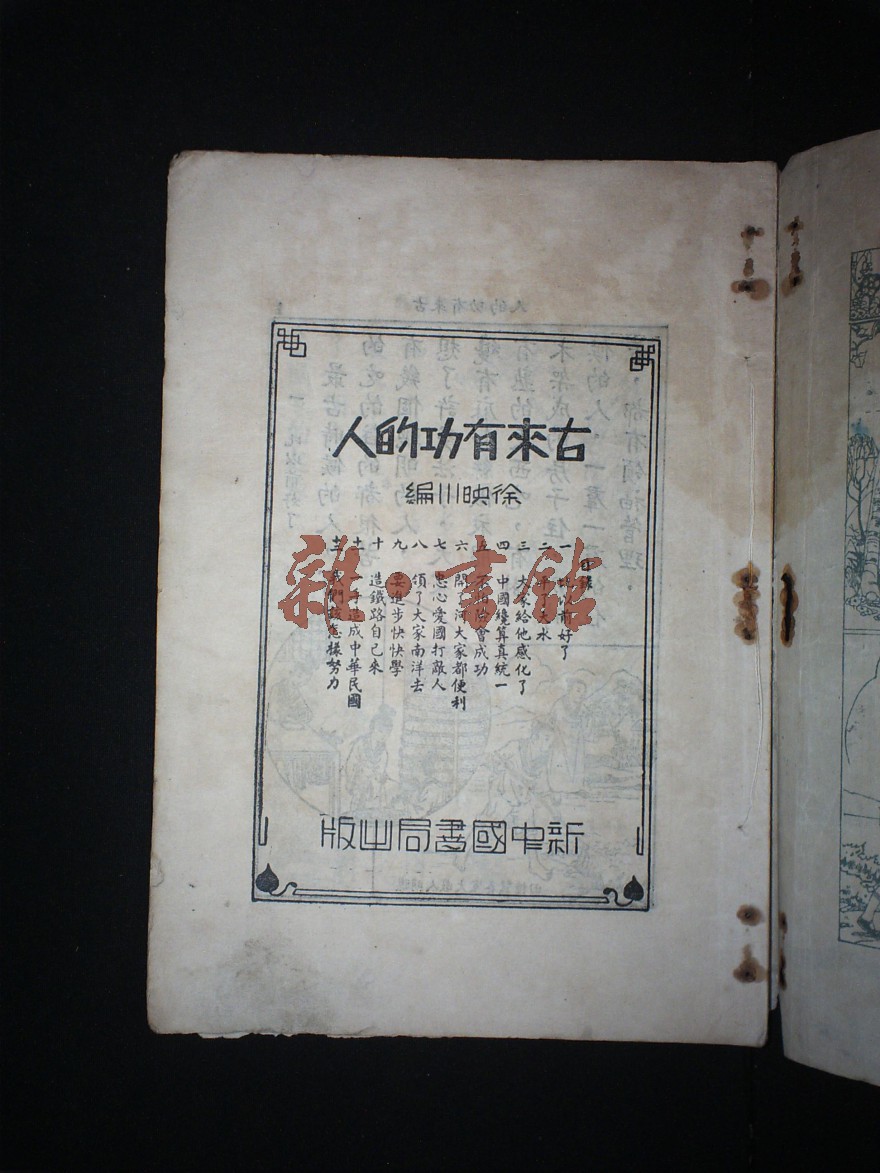 古來有功的人
徐映川編
目錄
一 前好了
二 大水
三 大家給他感化了
四 中國纔算真統一
五 不怕 會成功
六 開 河大家都便利
七 忠心愛國打敵人
八 領了大家南洋去
九 要進步快快學
十 造鐵路自己來
十一 一手造成中華民國
十二 我們該怎樣努力
新中國書局出版
雜·書館